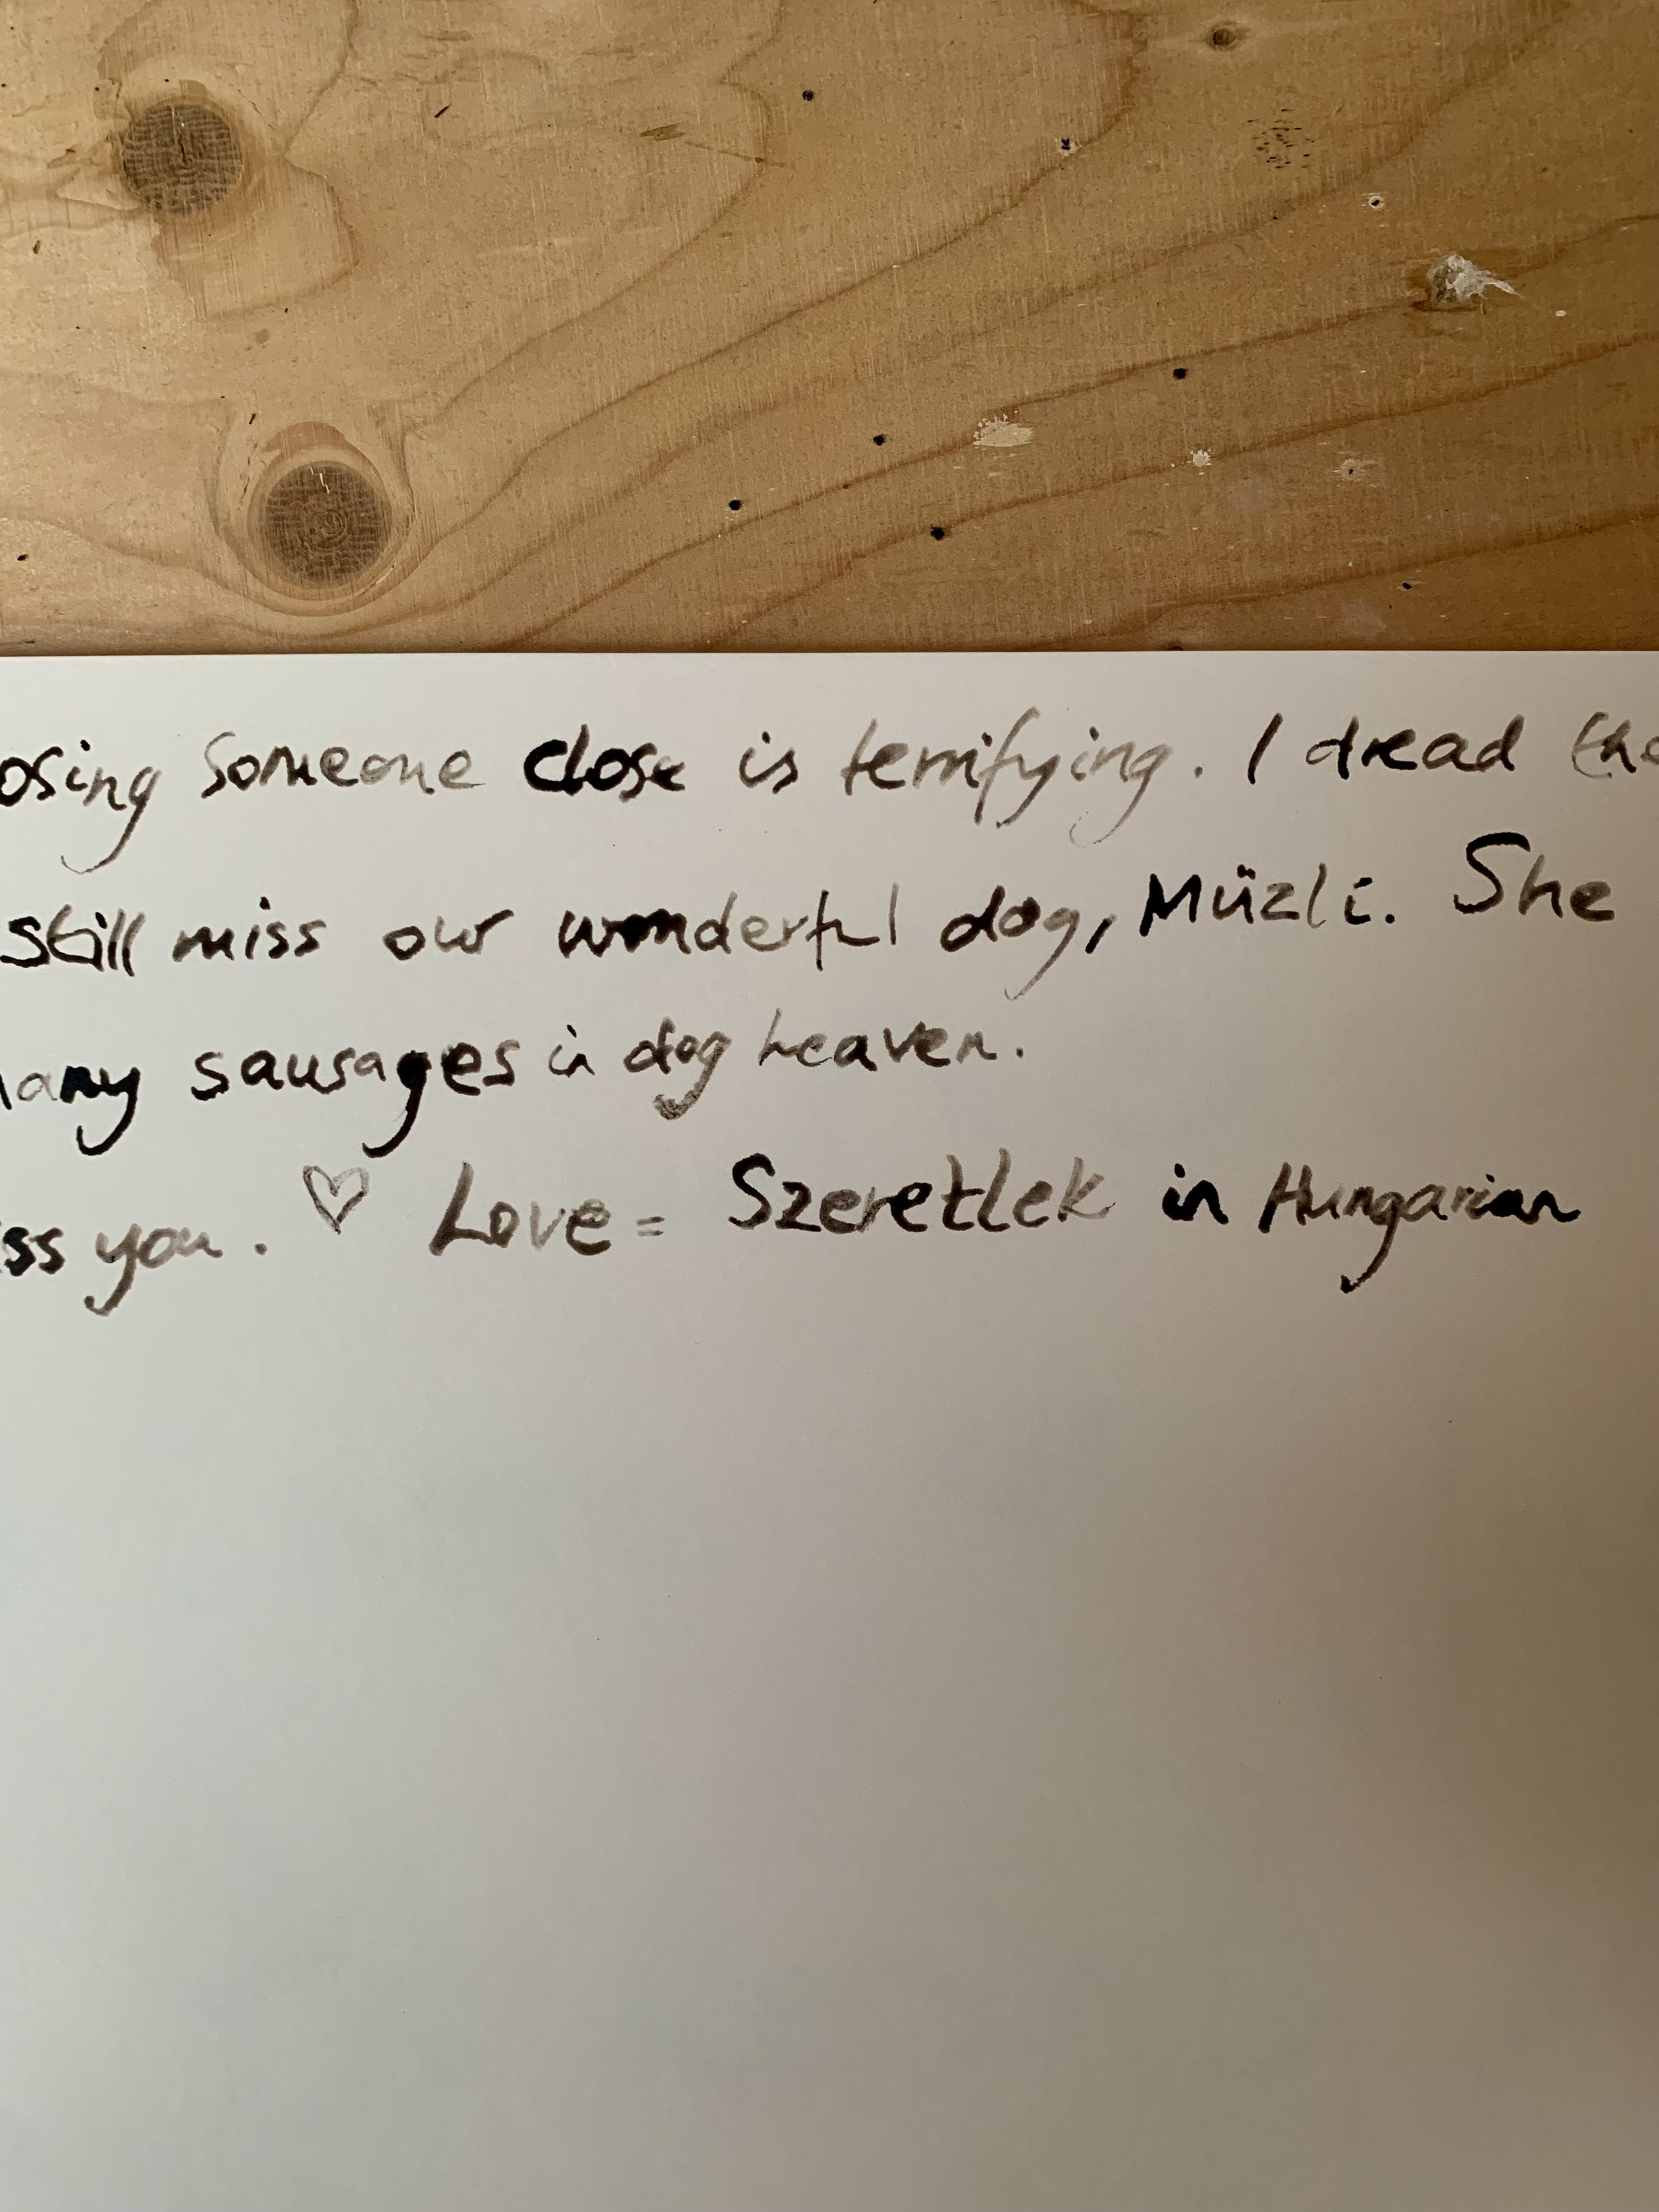 osing someone close is terrifying. I dread the
still miss our wonderful dog, Müzli. She
many sausages in dog heaven.
ss you. ♡ Love = Szeretlek in Hungarian